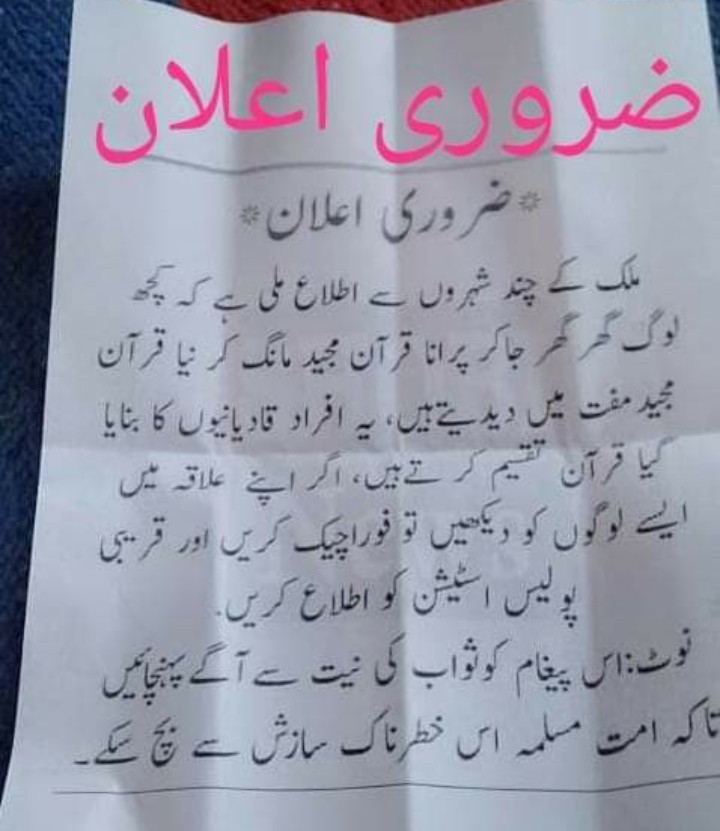 ضروری اعلان
*ضروری اعلان*
ملک کے چند شہروں سے اطلاع ملی ہے کہ کچھ
لوگ گھر گھر جاکر پرانا قرآن مجید مانگ کر نیا قرآن
مجید مفت میں دیدیتےہیں، یہ افراد قادیانیوں کا بنایا
گیا قرآن تقسیم کرتےہیں، اگر اپنے علاقہ میں
ایسے لوگوں کو دیکھیں تو فوراچیک کریں اور قریبی
پولیس اسٹیشن کو اطلاع کریں.
نوٹ:اس پیغام کوثواب کی نیت سے آگے پہنچائیں
تاکہ امت مسلمہ اس خطرناک سازش سے بچ سکے۔